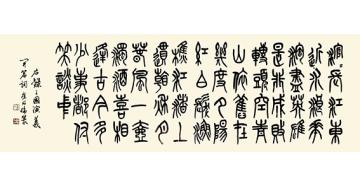 滚滚長江東
逝水浪花
淘盡英雄
是非成敗
轉頭空青
山依舊在
幾度夕陽
紅白髮漁
樵江渚上
春風一壺
濁酒喜相
逢古今多
少事都付
笑談中
右錄三國演義
開篇詞